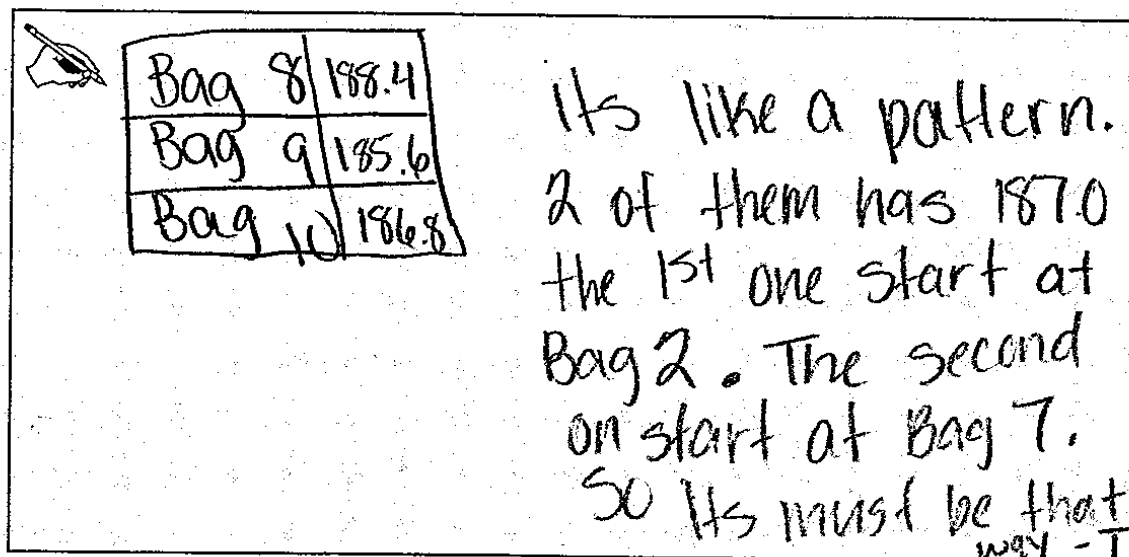 Bag 8 188.4
Bag 9 185.6
Bag 10 186.8
Its like a pattern.
2 of them has 187.0
the 1st one start at
Bag 2. The second
on start at Bag 7.
So Its must be that
way -